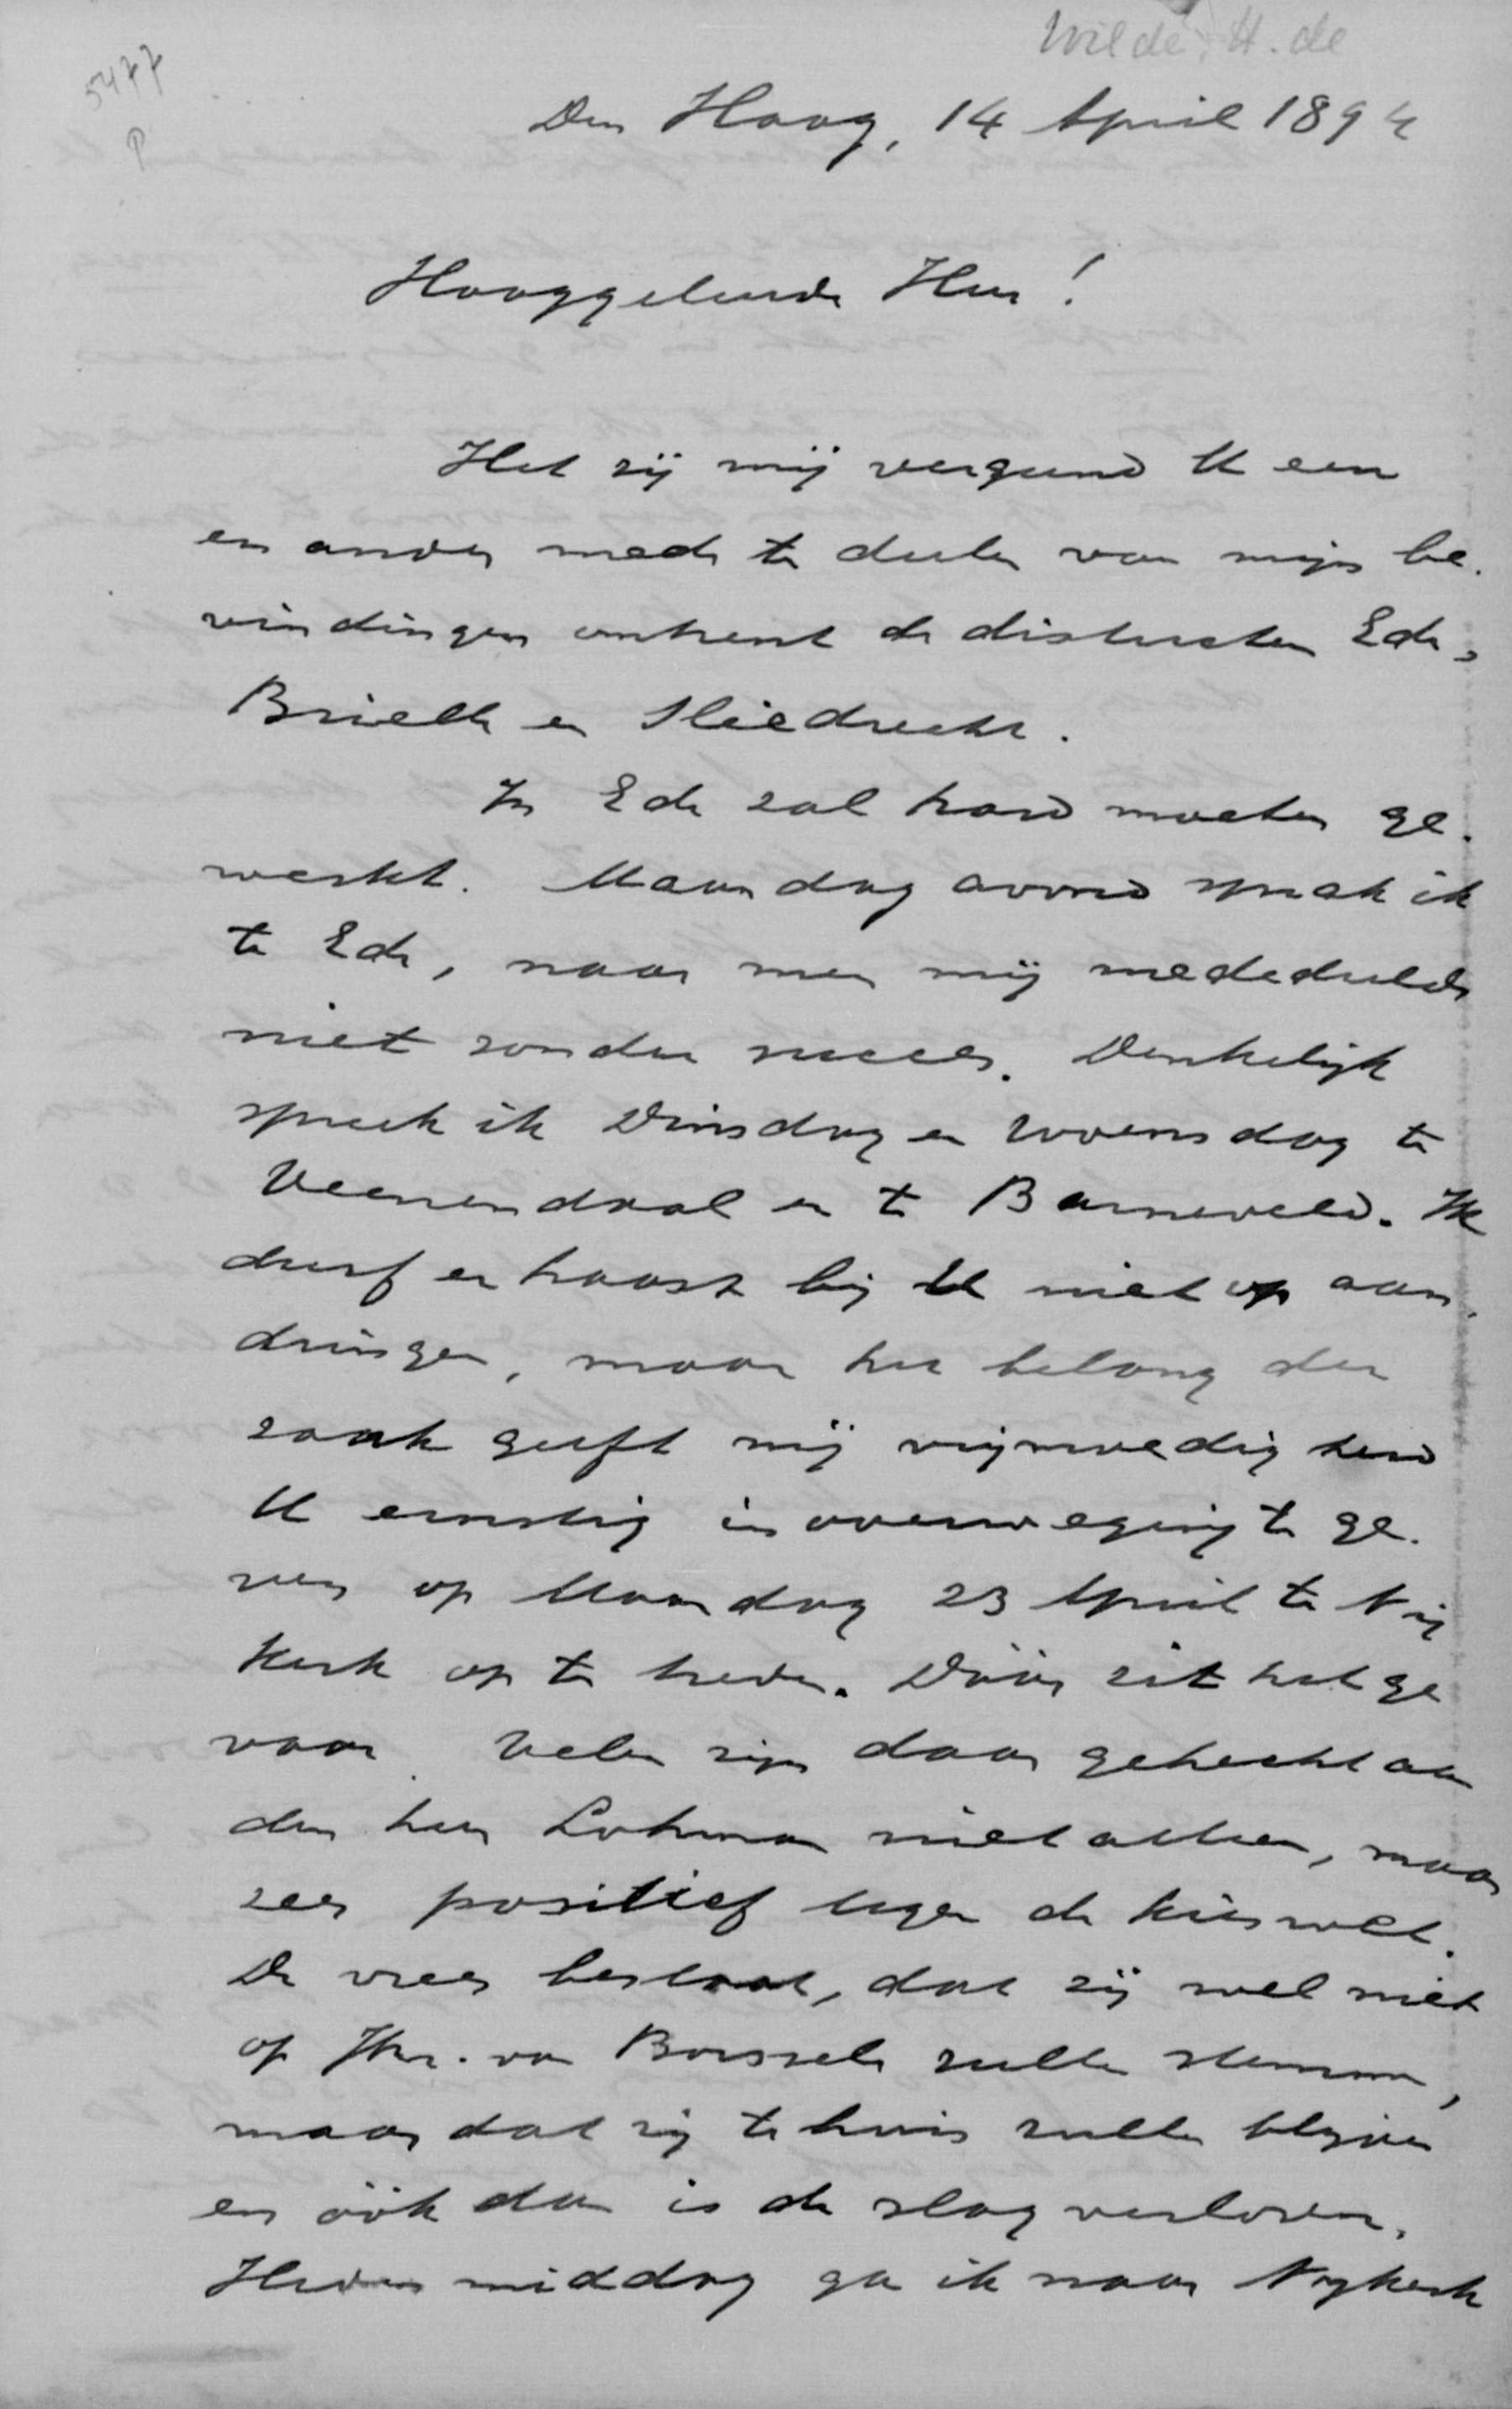 Wilde, H. de
5477
P
Den Haag, 14 April 1894
Hooggeleerde Heer!
Het zij mij vergund U een
en ander mede te deelen van mijn be-
vindingen omtrent de districten Ede,
Brielle en Sliedrecht.
In Ede zal hard moeten ge-
werkt. Maandag avond sprak ik
te Ede, naar men mij mededeelde
niet zonder succes. Denkelijk
spreek ik Dinsdag en Woensdag te
Veenendaal en te Barneveld. Ik
durf er haast bij U niet op aan-
dringen, maar het belang der
zaak geeft mij vrijmoedigheid
U ernstig in overweging te ge-
ven op Maandag 23 April te Nij
kerk op te treden. Dáár zit het ge
vaar. Velen zijn daar gehecht aan
den heer Lohman niet alleen, maar
zeer positief tegen de kieswet.
De vrees bestaat, dat zij wel niet
op Jhr. van Borssele zullen stemmen,
maar dat zij te huis zullen blijven
en óók dan is de slag verloren.
Heden middag ga ik naar Nijkerk